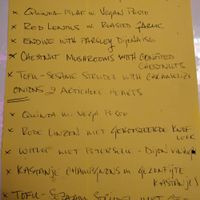 x QUINOA PILAF W VEGAN PESTO
x RED LENTILS W ROASTED GARLIC
x ENDIVE WITH PARSLEY DIJONAISE
x CHESTNUT MUSHROOMS WITH CONFITED CHESTNUTS
x TOFU - SESAME STRUDEL WITH CARAMELIZED
ONIONS & ARTICHOKE HEARTS
x QUINOA W. VEGA PESTO
x RODE LINZEN MET GEROOSTERDE KNOFLOOK
x WITLOF MET PETERSELIE - DIJON
x KASTANJE CHAMPIGNONS M GEKONFIJTE
KASTANJE
x TOFU - SEZAM STRUDEL MET